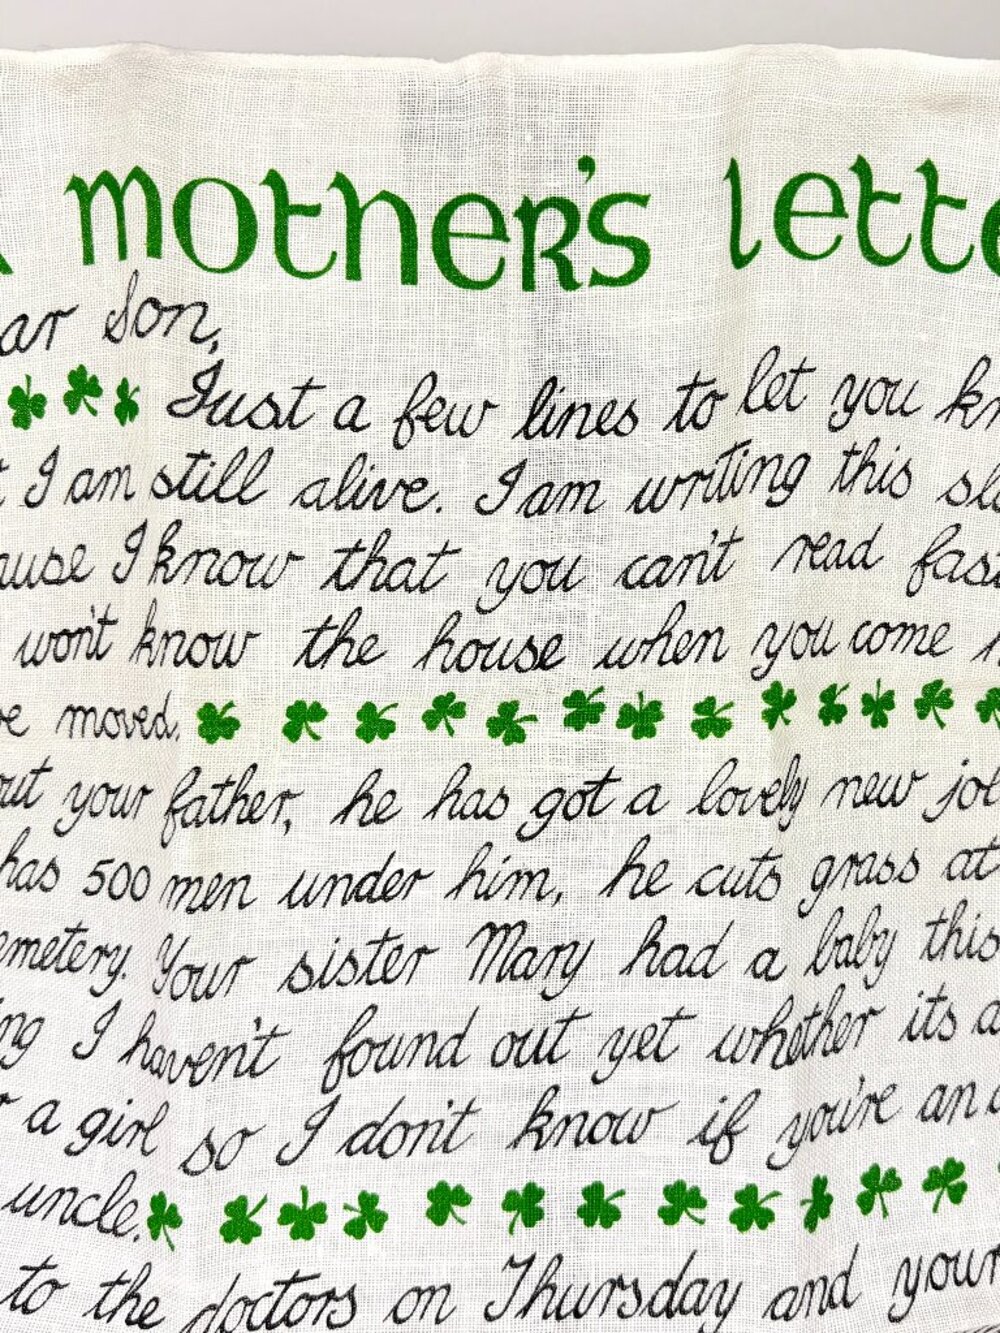 mother's lette
ar Son,
Just a few lines to let you kn
t I am still alive. I am writing this sl
ause I know that you can't read fas
won't know the house when you come h
ve moved.
out your father, he has got a lovely new job
has 500 men under him, he cuts grass at
emetery. Your sister Mary had a baby this
ng I haven't found out yet whether its a
r a girl so I don't know if you're an a
uncle.
to the doctors on Thursday and your